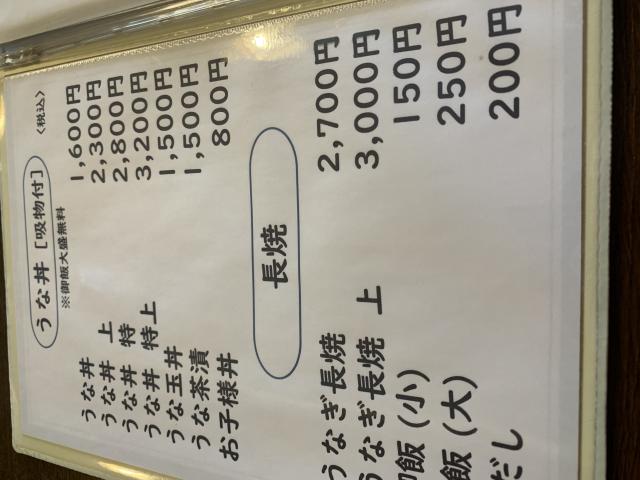 うな丼［吸物付］ 〈税込〉
※御飯大盛無料
うな丼 1,600円
うな丼 上 2,300円
うな丼 特 2,800円
うな丼 特上 3,200円
うな玉丼 1,500円
うな茶漬 1,500円
お子様丼 800円
長焼
うなぎ長焼 2,700円
うなぎ長焼 上 3,000円
御飯（小） 150円
飯（大） 250円
だし 200円